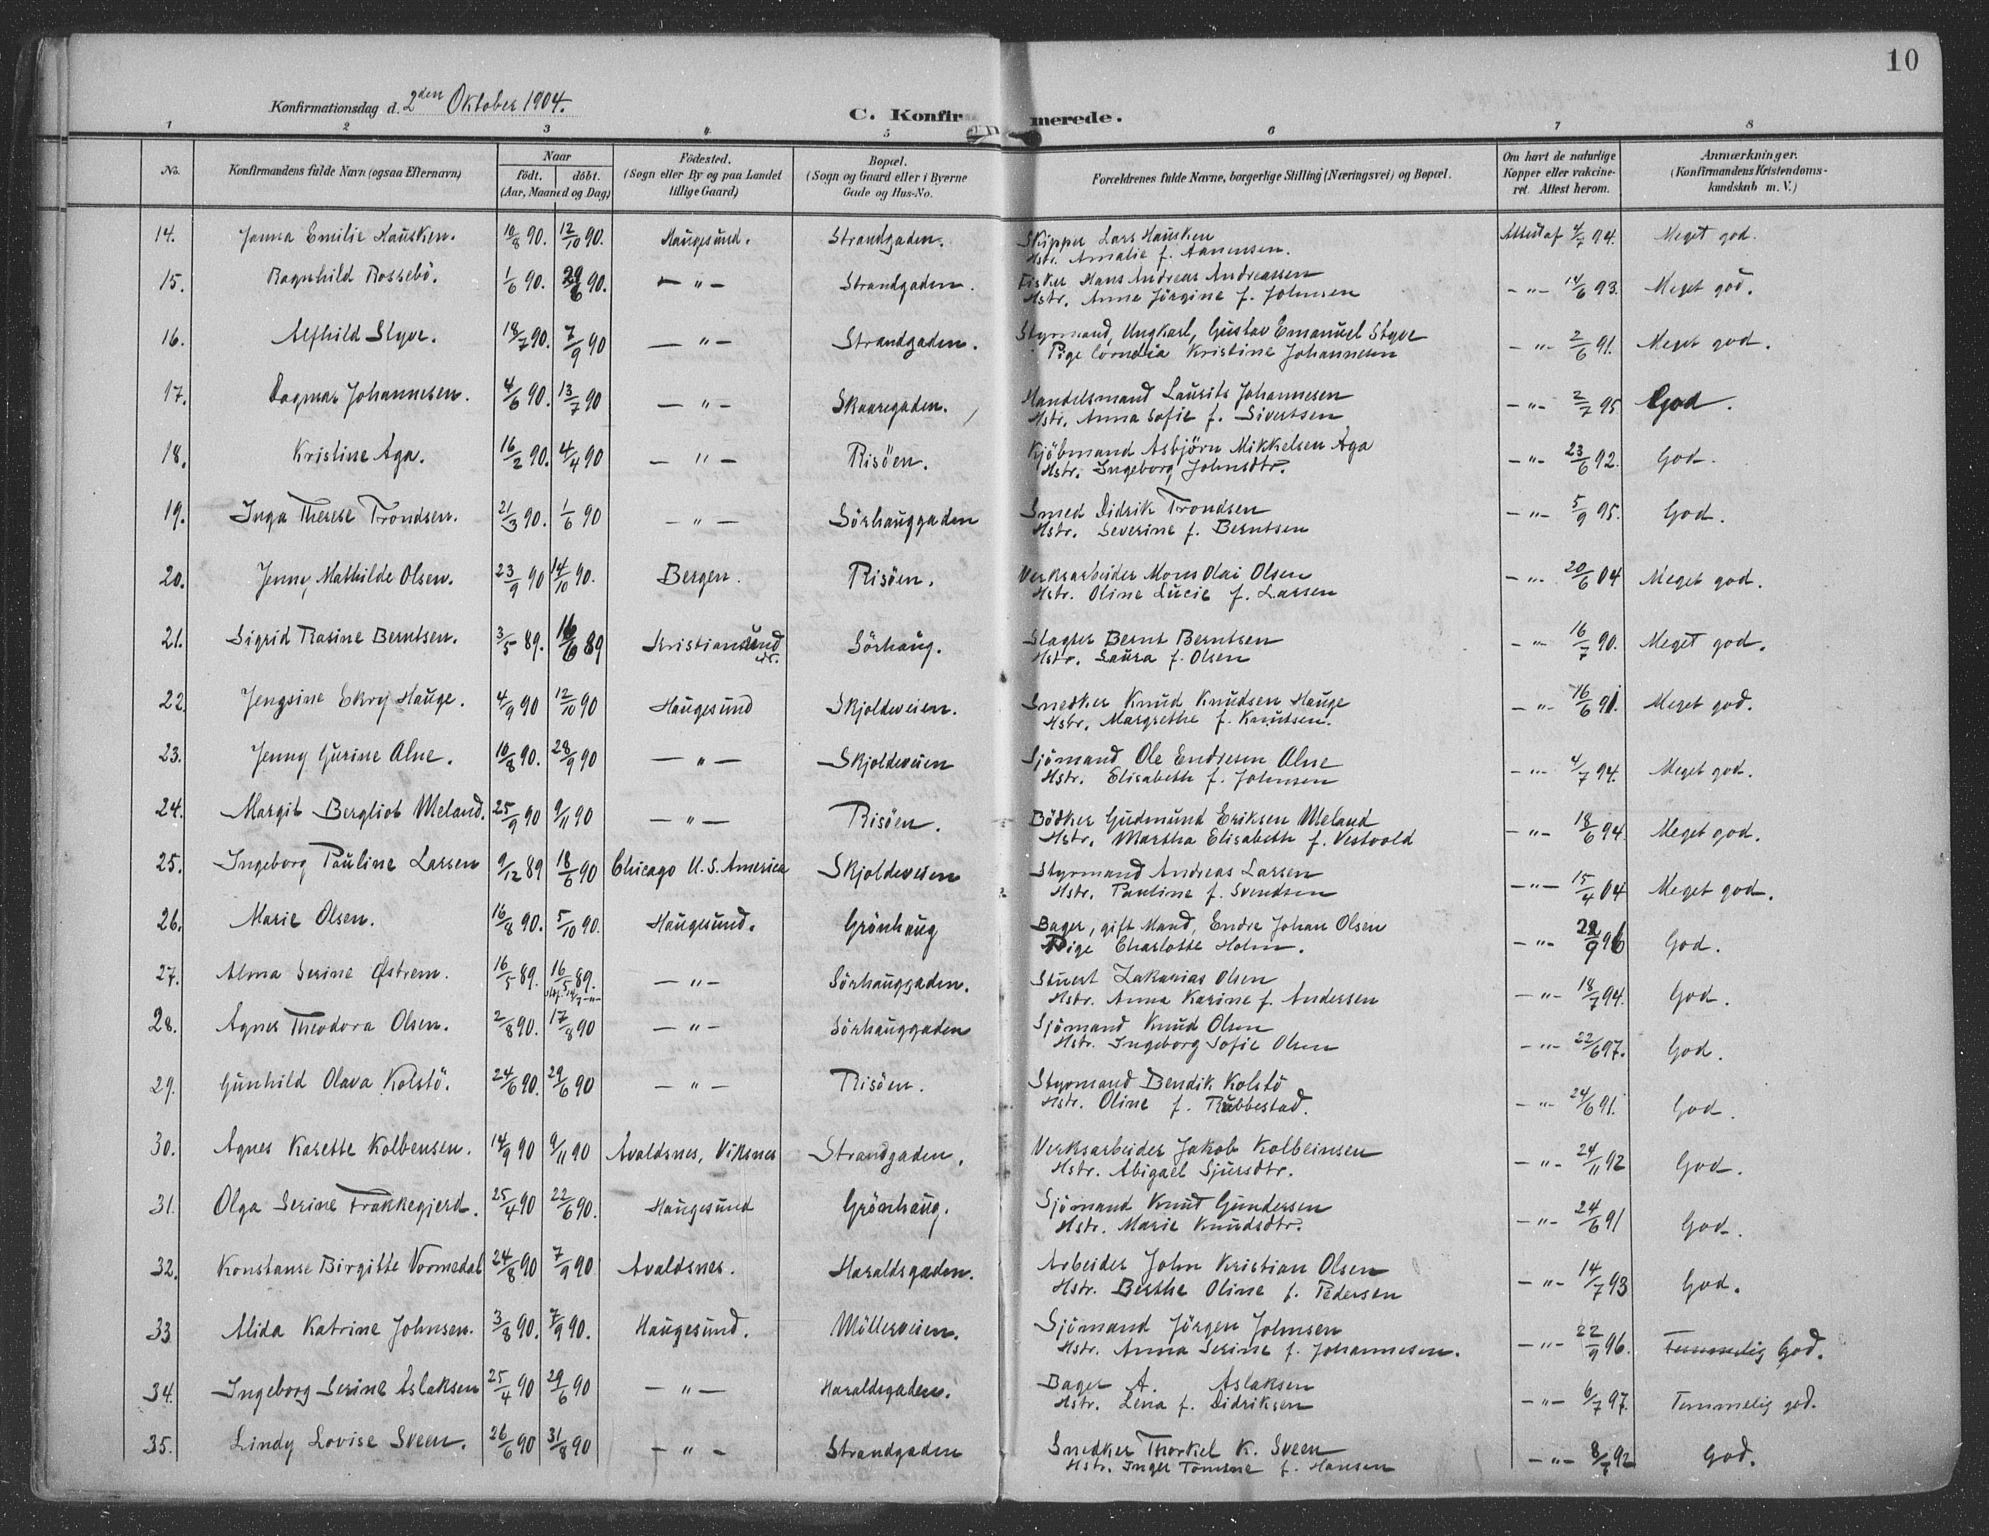 10
Konfirmationsdag d. 2den Oktober 1904.
C. Konfirmerede.
1 2 3 4 5 6 7 8
No. Konfirmandens fulde Navn (ogsaa Efternavn) Naar født. døbt. (Aar, Maaned og Dag) Fødested. (Sogn eller By og paa Landet tillige Gaard) Bopæl. (Sogn og Gaard eller i Byerne Gade og Hus-No. Forældrenes fulde Navne, borgerlige Stilling (Næringsvei) og Bopæl. Om havt de naturlige Kopper eller vakcineret. Attest herom. Anmærkninger. (Konfirmandens Kristendomskundskab m. V.)
14. Janna Emilie Hausken. 10/8 90. 12/10 90. Haugesund. Strandgaden. Skipper Lars Hausken Attest af 4/7 94. Meget god.
Hstr. Amalie f. Aanensen.
15. Ragnhild Rossebö. 1/6 90. 29/6 90. — " — Strandgaden. Fisker Hans Andreas Andreassen — " — 14/6 93. Meget god.
Hstr. Anne Jörgine f. Johnsen
16. Alfhild Styve. 18/7 90. 7/9 90 — " — Strandgaden. Styrmand, Ungkarl, Gustav Emanuel Styve — " — 2/6 91. Meget god.
Pige Cornelia Kristine Johannesen
17. Dagmar Johannesen. 4/6 90. 13/7 90 — " — Skaaregaden. Handelsmand Laurits Johannesen — " — 2/7 95 God.
Hstr. Anna Sofie f. Sivertsen
18. Kristine Aga. 16/2 90. 4/4 90 — " — Risöen. Kjöbmand Asbjörn Mikkelsen Aga — " — 23/6 92. God.
Hstr. Ingeborg Johnsdtr.
19. Inga Therese Trondsen. 21/3 90. 1/6 90 — " — Sörhauggaden Smed Didrik Trondsen — " — 5/9 95. God.
Hstr. Severine f. Berntsen
20. Jenny Mathilde Olsen. 23/9 90 14/10 90. Bergen. Risöen. Verksarbeider Mons Olai Olsen — " — 20/6 04 Meget god.
Hstr. Oline Lucie f. Larsen
21. Sigrid Rasine Berntsen. 3/5 89. 16/6 89 Kristiansund Sörhaug. Slagter Bernt Berntsen — " — 16/7 90. Meget god.
Hstr. Laura f. Olsen
22 Jengsine Ekry Hauge. 4/9 90 12/10 90 Haugesund Skjoldeveien. Snedker Knud Knudsen Hauge — " — 16/6 91. Meget god.
Hstr. Margrethe f. Knutsen.
23. Jenny Gurine Alne. 10/8 90. 28/9 90 — " — Skjoldeveien Sjömand Ole Endresen Alne — " — 4/7 94. Meget god.
Hstr. Elisabeth f. Johnsen
24. Margit Bergliot Meland. 25/9 90 9/11 90 — " — Risöen. Bödker Gudmund Eriksen Meland — " — 18/6 94. Meget god.
Hstr. Martha Elisabeth f. Vestvold
25. Ingeborg Pauline Larsen 9/12 89 18/6 90 Chicago U. S. America Skjoldeveien Styrmand Andreas Larsen — " — 15/4 04 Meget god.
Hstr. Pauline f. Svendsen
26. Marie Olsen. 16/8 90. 5/10 90. Haugesund. Grönhaug Bager, gift Mand, Endre Johan Olsen — " — 22/9 96 God.
Pige Charlotte Holm.
27. Alma Serine Østrem. 16/5 89. 16/5 89. — " — Sörhauggaden. Stuert Zakarias Olsen — " — 18/7 94. God.
Hstr. Anna Karine f. Andersen
28. Agnes Theodora Olsen. 2/8 90. 17/8 90 — " — Sörhauggaden Sjömand Knud Olsen — " — 22/6 97. God.
Hstr. Ingeborg Sofie Olsen
29. Gunhild Olava Kolstö. 24/6 90. 29/6 90 — " — Risöen. Styrmand Bendik Kolstö — " — 24/6 91. God.
Hstr. Oline f. Rubbestad.
30. Agnes Karette Kolbensen. 14/9 90 9/11 90 Avaldsnes, Viksnes Strandgaden. Verksarbeider Jakob Kolbeinsen — " — 24/11 92 God.
Hstr. Abigael Sjursdtr.
31. Olga Serine Frakkegjerd. 25/4 90 22/6 90. Haugesund Grönhaug. Sjömand Knut Gundersen — " — 24/6 91 God.
Hstr. Marie Knudsdtr.
32. Konstanse Birgitte Vormedal 24/8 90 7/9 90 Avaldsnes. Haraldsgaden. Arbeider John Kristian Olsen — " — 14/7 93 God.
Hstr. Berthe Oline f. Pedersen
33 Alida Katrine Johnsen. 3/8 90. 7/9 90. Haugesund. Mölleveien. Sjömand Jörgen Johnsen — " — 22/9 96. Temmelig God.
Hstr. Anna Serine f. Johannesen.
34. Ingeborg Serine Aslaksen 25/4 90 29/6 90 — " — Haraldsgaden. Bager A. Aslaksen — " — 6/7 97. Temmelig god.
Hstr. Lena f. Didriksen
35. Lindy Lovise Sveen. 26/6 90 31/8 90 — " — Strandgaden Snedker Thorkel K. Sveen — " — 92 God.
Hstr. Inger Tomine f. Hansen